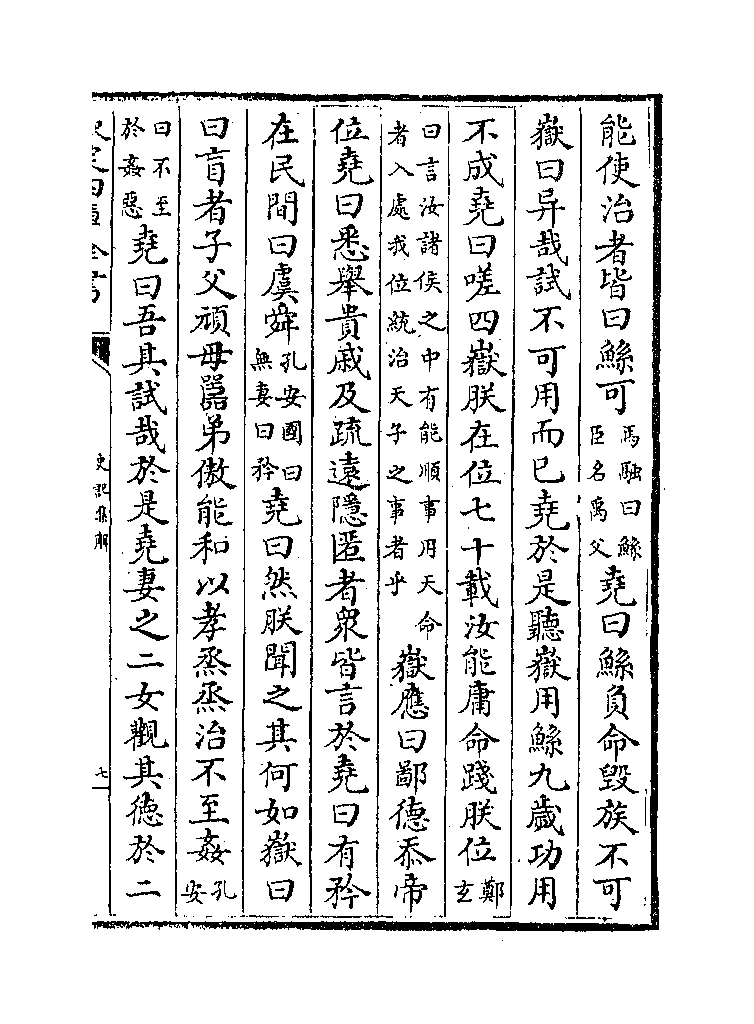 能使治者皆曰鯀可馬融曰鯀臣名禹父堯曰鯀負命毀族不可
嶽曰异哉試不可用而已堯於是聽嶽用鯀九歲功用
不成堯曰嗟四嶽朕在位七十載汝能庸命踐朕位鄭玄
曰言汝諸侯之中有能順事用天命者入處我位統治天子之事者乎嶽應曰鄙德忝帝
位堯曰悉舉貴戚及疏遠隱匿者衆皆言於堯曰有矜
在民間曰虞舜孔安國曰無妻曰矜堯曰然朕聞之其何如嶽曰
曰盲者子父頑母嚚弟傲能和以孝烝烝治不至姦孔安
曰不至於姦惡堯曰吾其試哉於是堯妻之二女觀其德於二
史記集解
七